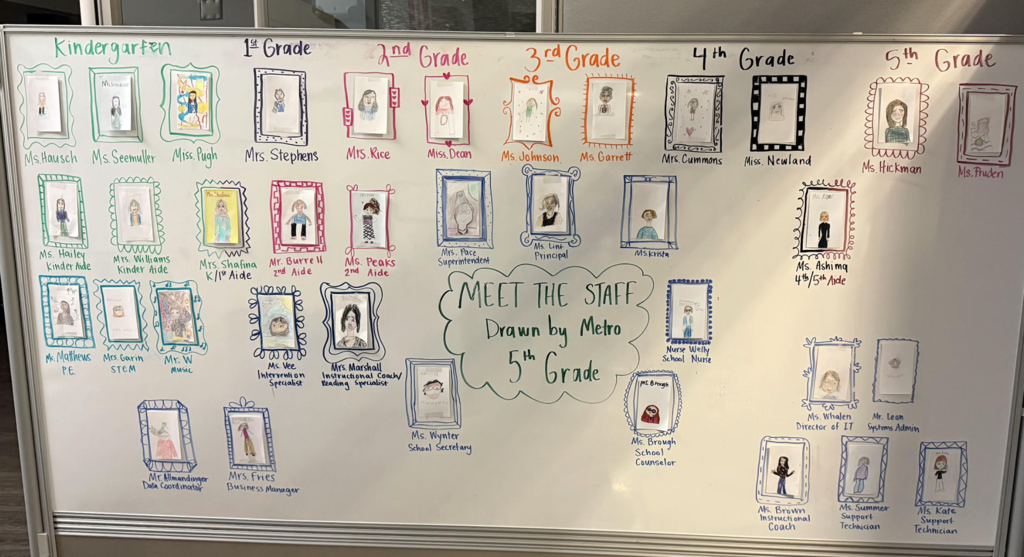 Kindergarten
1st Grade
2nd Grade
3rd Grade
4th Grade
5th Grade
Ms. Hausch
Ms. Seemuller
Miss. Pugh
Mrs. Stephens
Mrs. Rice
Miss. Dean
Ms. Johnson
Ms. Garrett
Mrs. Cummons
Miss. Newland
Ms. Hickman
Ms. Pruden
Ms. Hailey
Kinder Aide
Mrs. Williams
Kinder Aide
Mrs. Shafina
K/1st Aide
Mr. Burrell
2nd Aide
Ms. Peaks
2nd Aide
Mrs. Pace
Superintendent
Ms. Lint
Principal
Ms Krista
Ms. Ashima
4th/5th Aide
MEET THE STAFF
Drawn by Metro
5th Grade
Matthews
P.E
Mrs. Garin
STEM
Mr. W
Music
Ms. Vee
Intervention
Specialist
Mrs. Marshall
Instructional Coach/
Reading Specialist
Nurse Welly
School Nurse
Ms. Wynter
School Secretary
Ms. Brough
Ms. Brough
School
Counselor
Ms. Whalen
Director of IT
Mr. Leon
Systems Admin
Mr. Allmandinger
Data Coordinator
Mrs. Fries
Business Manager
Ms. Brown
Instructional
Coach
Ms. Summer
Support
Technician
Ms. Kate
Support
Technician